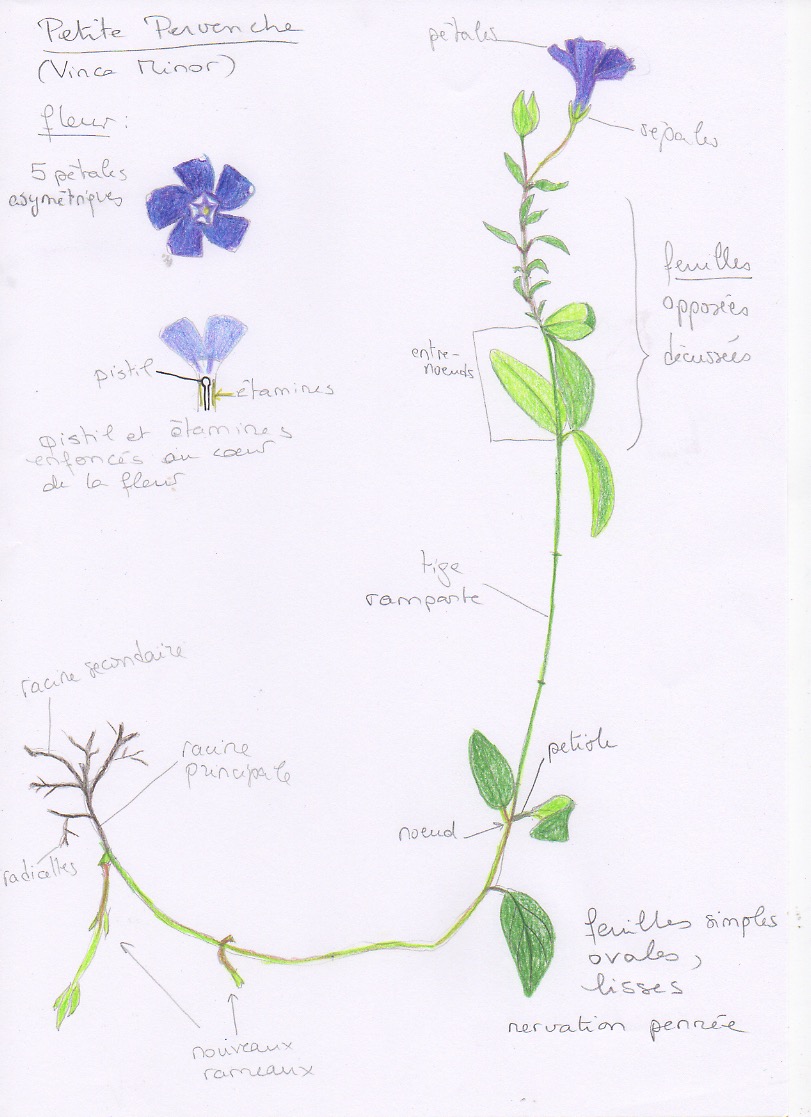 Petite Pervenche
(Vinca Minor)
fleur :
5 pétales
asymétriques
pistil
étamines
pistil et étamines
enfoncés au coeur
de la fleur
pétales
sépales
feuilles
opposées
décussées
entre-
noeuds
tige
rampante
racine secondaire
racine
principale
radicelles
petiole
noeud
nouveaux
rameaux
feuilles simples
ovales,
lisses
nervation pennée